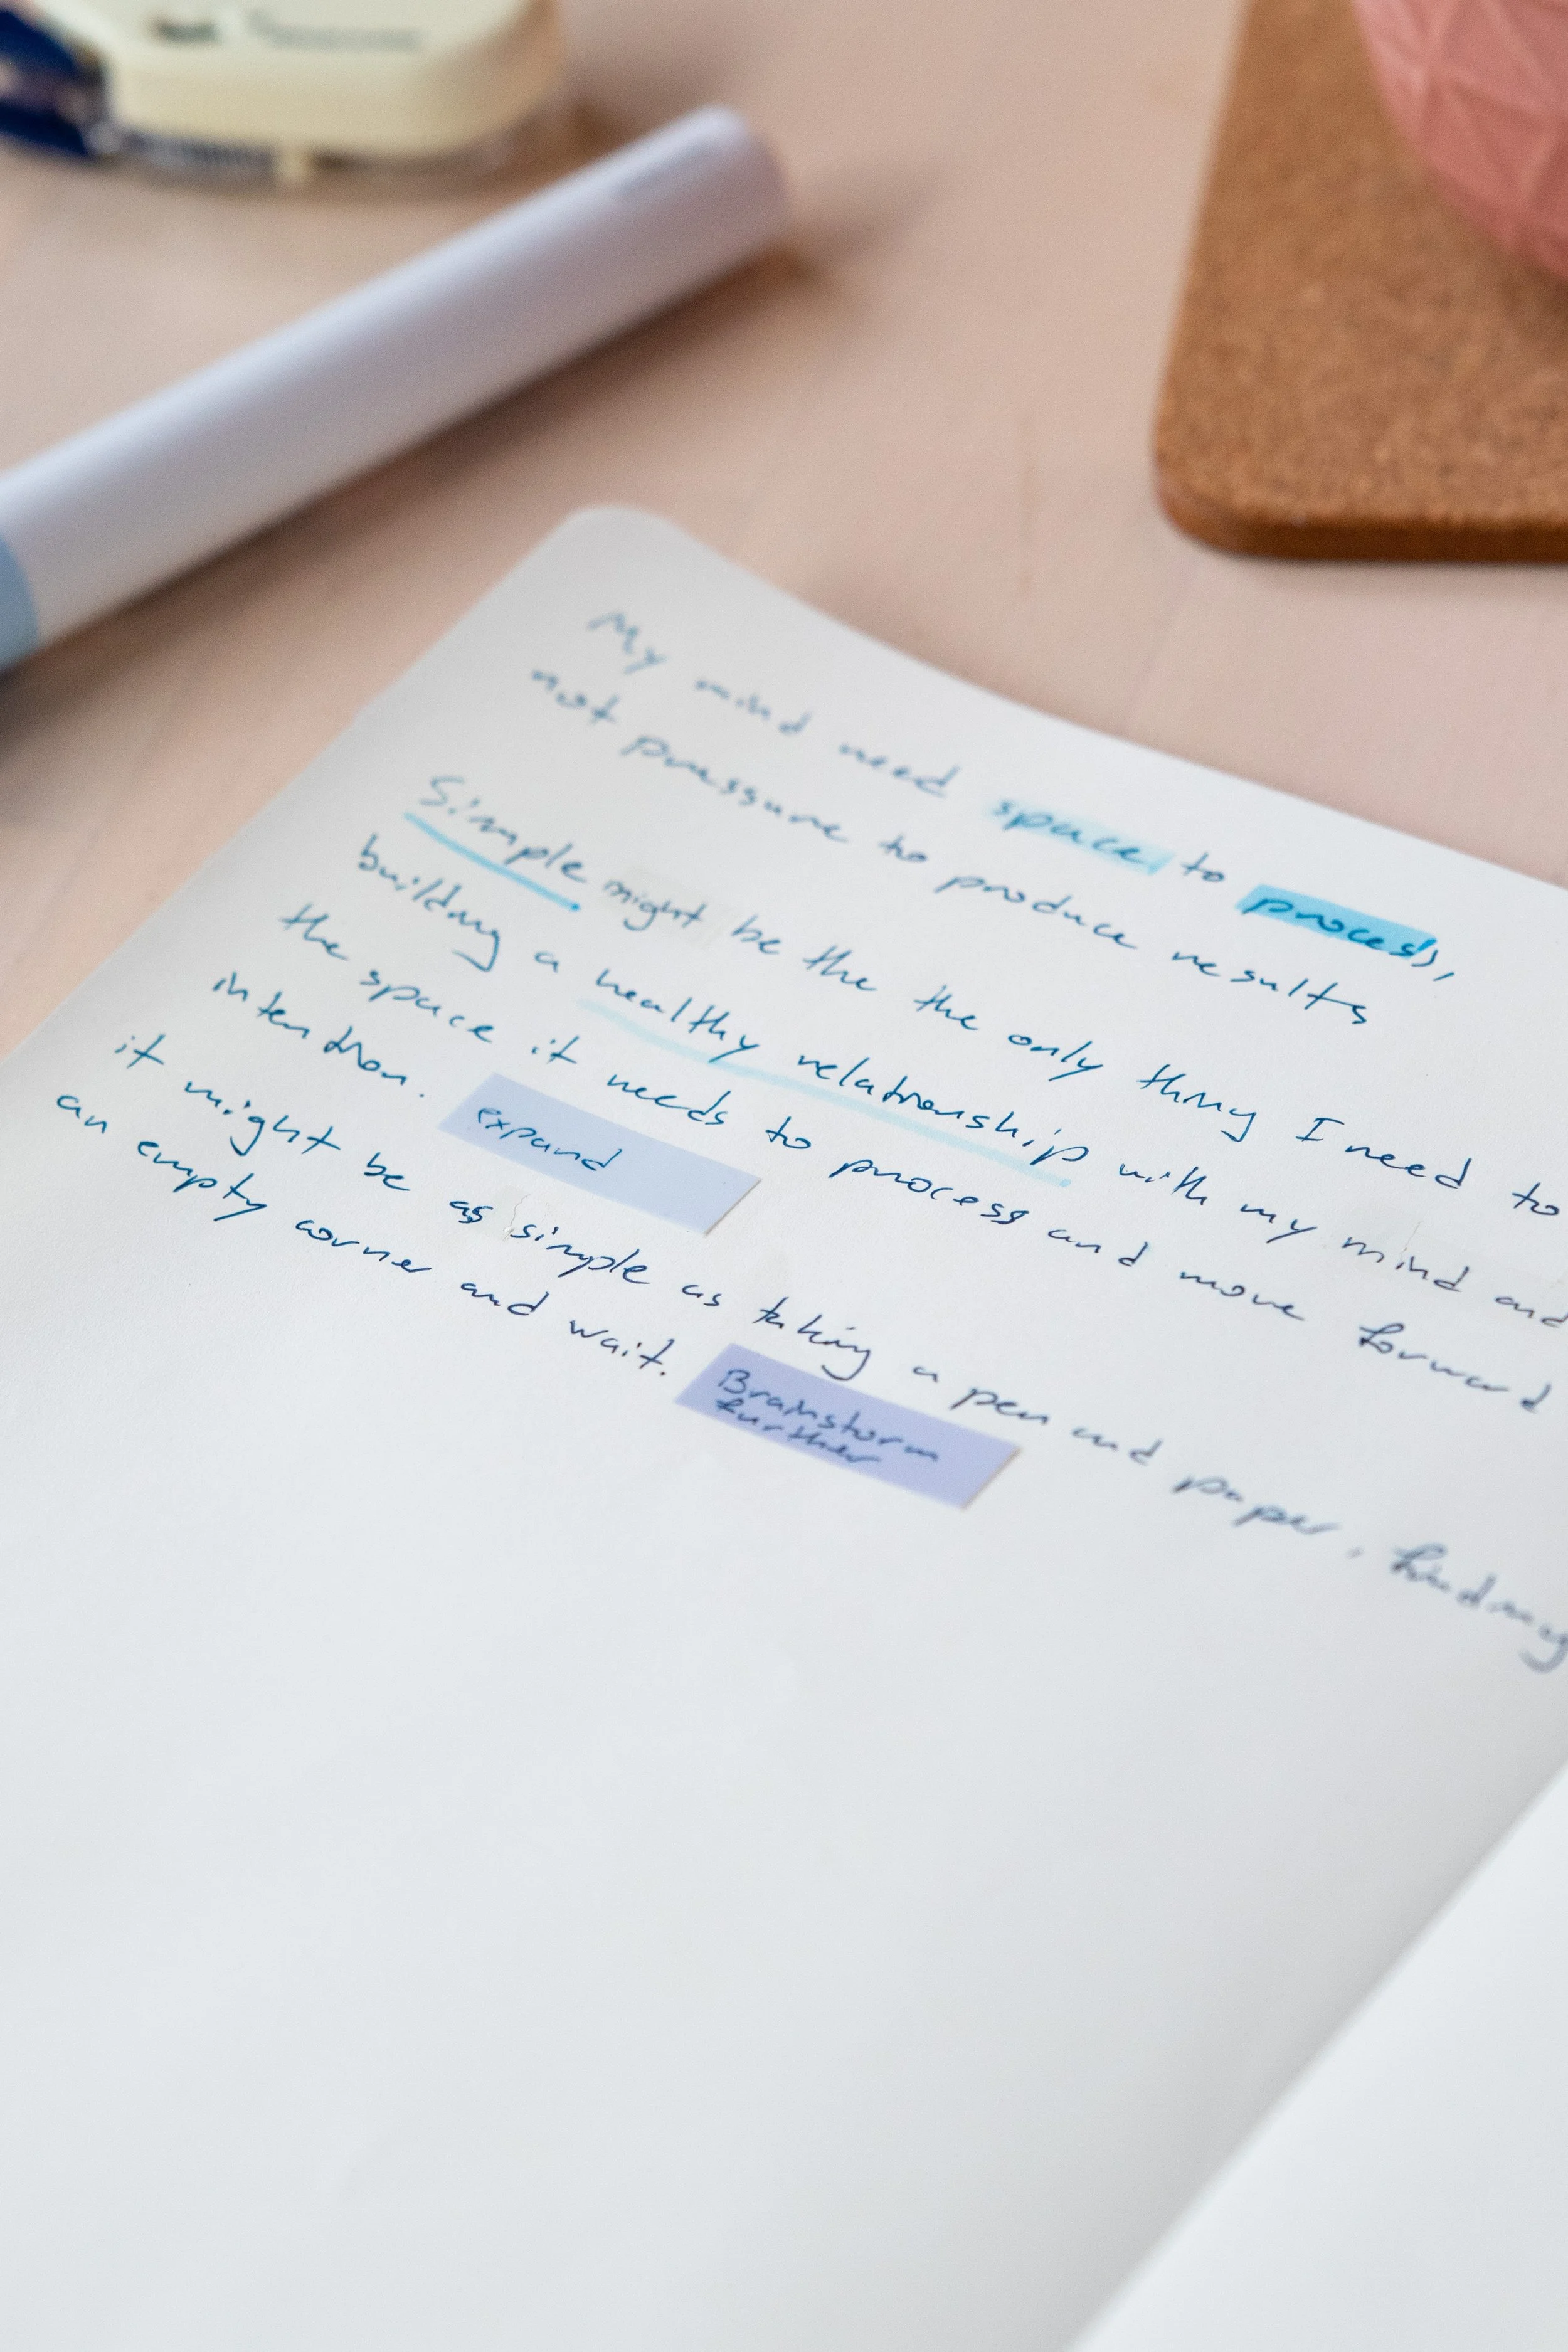 My mind need space to process,
not pressure to produce results
Simple might be the the only thing I need to
building a healthy relationship with my mind and
the space it needs to process and move forward
intention. expand
it might be as simple as taking a pen and paper, finding
an empty corner and wait. Brainstorm
further